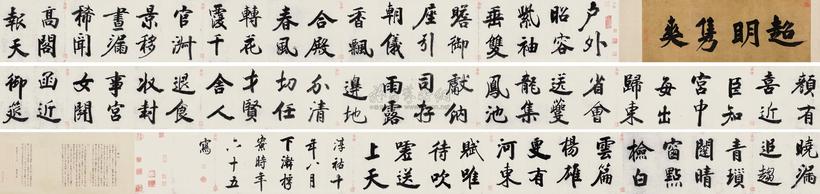 超明雋爽
户外
昭容
紫袖
垂雙
瞻御
座引
朝儀
香飄
合殿
春風
轉花
覆千
官淑
景移
晝漏
稀聞
高閣
報天
顏有
喜近
臣知
宮中
每出
歸東
省會
送夔
龍集
鳳池
獻納
司存
雨露
邊地
分清
切任
才賢
舍人
退食
收封
事宮
女開
函近
御筵
曉漏
追趨
青瑣
闥晴
窗點
檢白
雲篇
楊雄
更有
河東
賦唯
待吹
噓送
上天
淳祐十
年八月
下澣樗
寮時年
六十五
寫